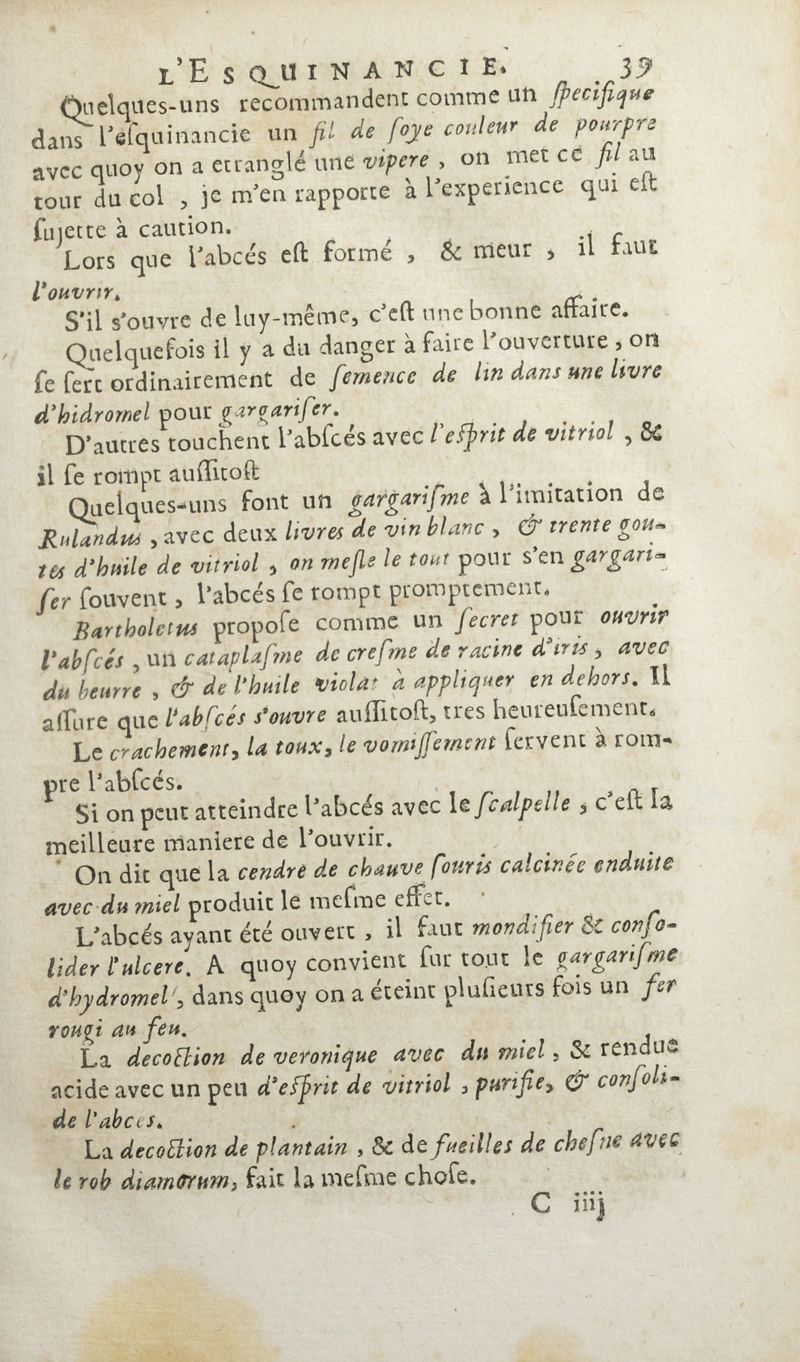 L'ESQUINANCIE. 39
Quelques-uns recommandent comme un ſpecifique
dans l'eſquinancie un fil de ſoye couleur de pourpre
avec quoy on a etranglé une vipere, on met ce fil au
tour du col, je m'en rapporte à l'experience qui eſt
ſujette à caution.
Lors que l'abcés eſt formé, & meur, il faut
l'ouvrir.
S'il s'ouvre de luy-même, c'eſt une bonne affaire.
Quelquefois il y a du danger à faire l'ouverture, on
ſe ſert ordinairement de ſemence de lin dans une livre
d'hidromel pour gargariſer.
D'autres touchent l'abſcés avec l'eſprit de vitriol, &
il ſe rompt auſſitoſt
Quelques-uns font un gargariſme à l'imitation de
Rulandus, avec deux livres de vin blanc, & trente gou-
tes d'huile de vitriol, on meſle le tout pour s'en gargari-
ſer ſouvent, l'abcés ſe rompt promptement.
Bartholetus propoſe comme un ſecret pour ouvrir
l'abſcés, un cataplaſme de creſme de racine d'iris, avec
du beurre, & de l'huile violat à appliquer en dehors. Il
aſſure que l'abſcés s'ouvre auſſitoſt, tres heureuſement.
Le crachement, la toux, le vomiſſement ſervent à rom-
pre l'abſcés.
Si on peut atteindre l'abcés avec le ſcalpelle, c'eſt la
meilleure maniere de l'ouvrir.
On dit que la cendre de chauve ſouris calcinée enduite
avec du miel produit le meſme effet.
L'abcés ayant été ouvert, il faut mondifier & conſo-
lider l'ulcere. A quoy convient ſur tout le gargariſme
d'hydromel, dans quoy on a éteint pluſieurs fois un fer
rougi au feu.
La decoction de veronique avec du miel, & rendue
acide avec un peu d'eſprit de vitriol, purifie, & conſoli-
de l'abces.
La decoction de plantain, & de fueilles de cheſne avec
le rob diamorum, fait la meſme choſe.
C iiij